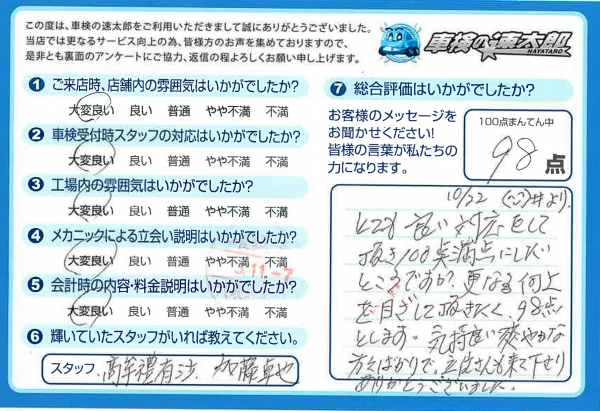 この度は、車検の速太郎をご利用いただきまして誠にありがとうございました。
当店では更なるサービス向上の為、皆様方のお声を集めておりますので、
是非とも裏面のアンケートにご協力、返信の程よろしくお願い申し上げます。
車検の速太郎
HAYATARO
1 ご来店時、店舗内の雰囲気はいかがでしたか?
大変良い 良い 普通 やや不満 不満
2 車検受付時スタッフの対応はいかがでしたか?
大変良い 良い 普通 やや不満 不満
3 工場内の雰囲気はいかがでしたか?
大変良い 良い 普通 やや不満 不満
4 メカニックによる立会い説明はいかがでしたか?
大変良い 良い 普通 やや不満 不満
5 会計時の内容・料金説明はいかがでしたか?
大変良い 良い 普通 やや不満 不満
6 輝いていたスタッフがいれば教えてください。
スタッフ 高牟禮有 加藤卓也
7 総合評価はいかがでしたか?
お客様のメッセージを
お聞かせください!
皆様の言葉が私たちの
力になります。
100点まんてん中
98点
10/22 井より
とても良い対応をして
頂き100点満点にしたい
ところですが?更なる向上
を目ざして頂きたく、98点
とします。気持良い爽やかな
方々ばかりで、立位さんも来て下さり
ありがとうございました。